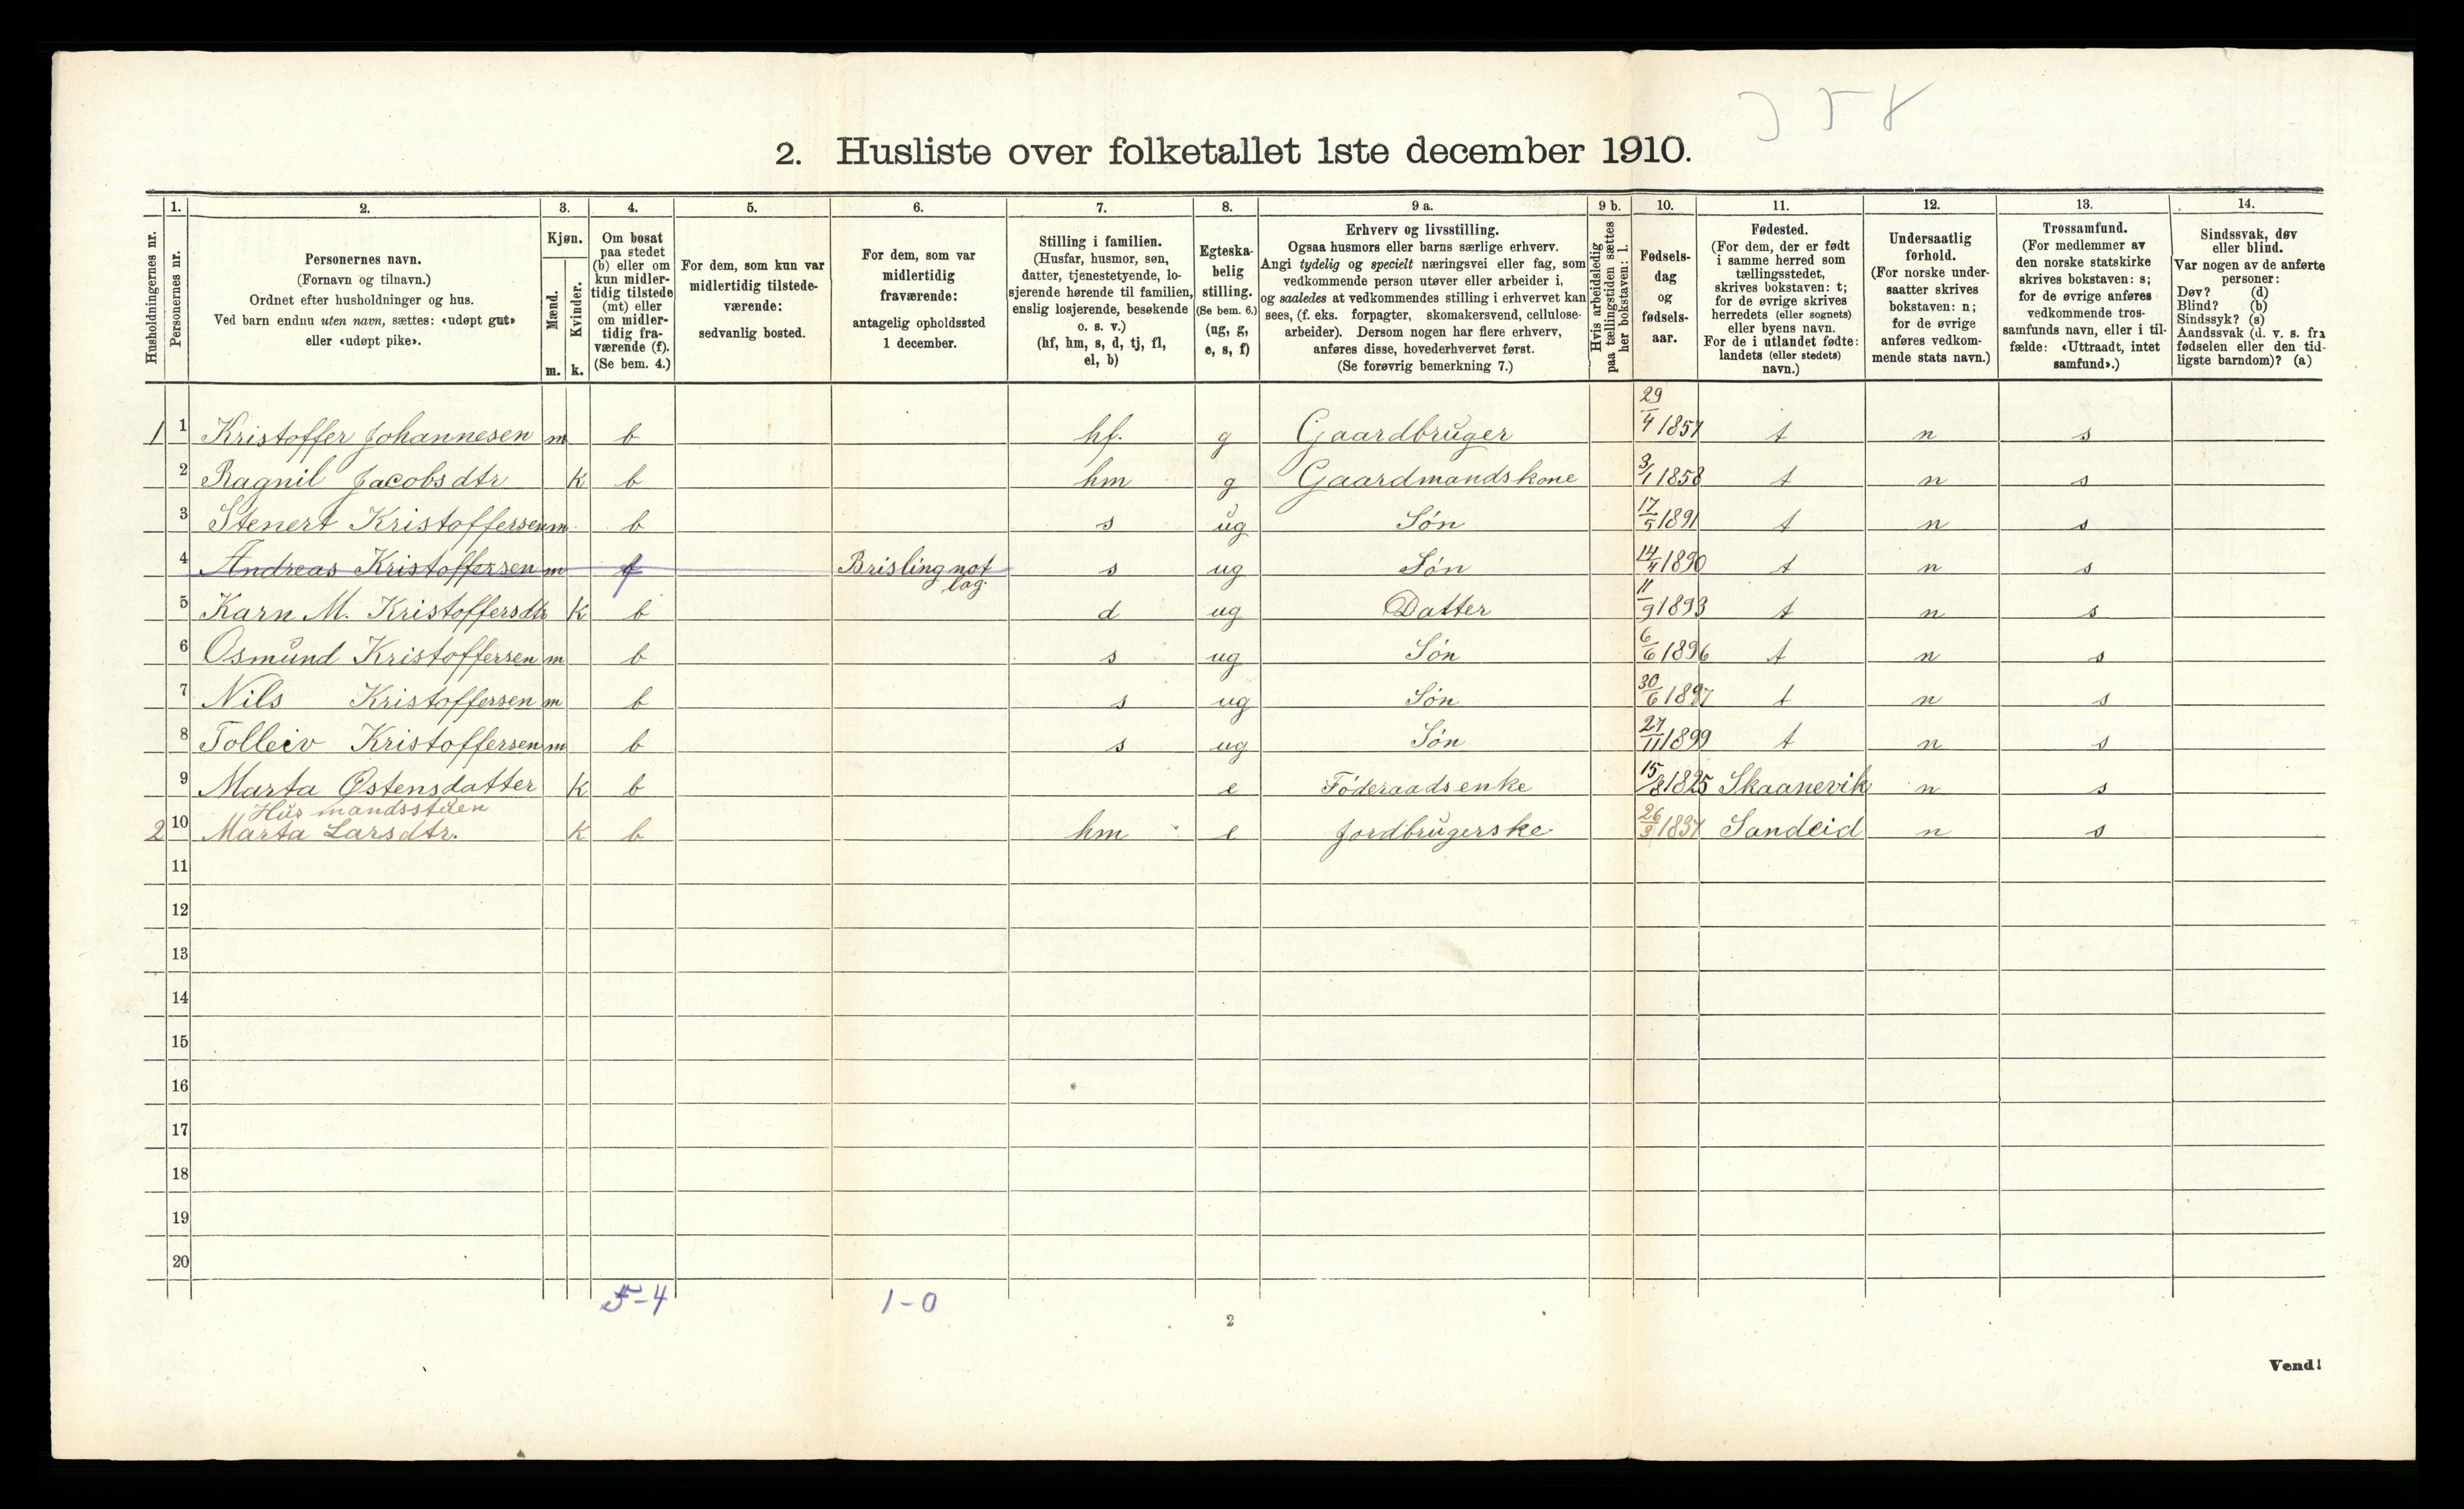 358
2. Husliste over folketallet 1ste december 1910.
Husholdningernes nr.
1.
Personernes nr.
2.
Personernes navn.
(Fornavn og tilnavn.)
Ordnet efter husholdninger og hus.
Ved barn endnu uten navn, sættes: «udøpt gut»
eller «udøpt pike».
3.
Kjøn.
Mænd.
Kvinder.
m. k.
4.
Om bosat
paa stedet
(b) eller om
kun midler-
tidig tilstede
(mt) eller
om midler-
tidig fra-
værende (f).
(Se bem. 4.)
5.
For dem, som kun var
midlertidig tilstede-
værende:
sedvanlig bosted.
6.
For dem, som var
midlertidig
fraværende:
antagelig opholdssted
1 december.
7.
Stilling i familien.
(Husfar, husmor, søn,
datter, tjenestetyende, lo-
sjerende hørende til familien,
enslig losjerende, besøkende
o. s. v.)
(hf, hm, s, d, tj, fl,
el, b)
8.
Egteska-
belig
stilling.
(Se bem. 6.)
(ug, g,
e, s, f)
9 a.
Erhverv og livsstilling.
Ogsaa husmors eller barns særlige erhverv.
Angi tydelig og specielt næringsvei eller fag, som
vedkommende person utøver eller arbeider i,
og saaledes at vedkommendes stilling i erhvervet kan
sees, (f. eks. forpagter, skomakersvend, cellulose-
arbeider). Dersom nogen har flere erhverv,
anføres disse, hovederhvervet først.
(Se forøvrig bemerkning 7.)
9 b.
Hvis arbeidsledig
paa tællingstiden sættes
her bokstaven: l.
10.
Fødsels-
dag
og
fødsels-
aar.
11.
Fødested.
(For dem, der er født
i samme herred som
tællingsstedet,
skrives bokstaven: t;
for de øvrige skrives
herredets (eller sognets)
eller byens navn.
For de i utlandet fødte:
landets (eller stedets)
navn.)
12.
Undersaatlig
forhold.
(For norske under-
saatter skrives
bokstaven: n;
for de øvrige
anføres vedkom-
mende stats navn.)
13.
Trossamfund.
(For medlemmer av
den norske statskirke
skrives bokstaven: s;
for de øvrige anføres
vedkommende tros-
samfunds navn, eller i til-
fælde: «Uttraadt, intet
samfund».)
14.
Sindssvak, døv
eller blind.
Var nogen av de anførte
personer:
Døv? (d)
Blind? (b)
Sindssyk? (s)
Aandssvak (d. v. s. fra
fødselen eller den tid-
ligste barndom)? (a)
1 1 Kristoffer Johannesen m b hf. g Gaardbruger 29/4 1857 t n s
2 Ragnil Jacobsdtr k b hm g Gaardmandskone 3/1 1858 t n s
3 Stenert Kristoffersen m b s ug Søn 17/5 1891 t n s
4 Andreas Kristoffersen m f Brislingnot s ug Søn 14/4 1890 t n s
lag.
5 Karn M. Kristoffersdtr k b d ug Datter 11/9 1893 t n s
6 Osmund Kristoffersen m b s ug Søn 6/6 1896 t n s
7 Nils Kristoffersen m b s ug Søn 30/6 1897 t n s
8 Tolleiv Kristoffersen m b s ug Søn 27/11 1899 t n s
9 Marta Østensdatter k b e Føderaadsenke 15/8 1825 Skaanevik n s
Husmandsstuen
2 10 Marta Larsdtr. k b hm e Jordbrugerske 26/3 1837 Sandeid n s
11
12
13
14
15
16
17
18
19
20
5-4 1-0
2
Vend!